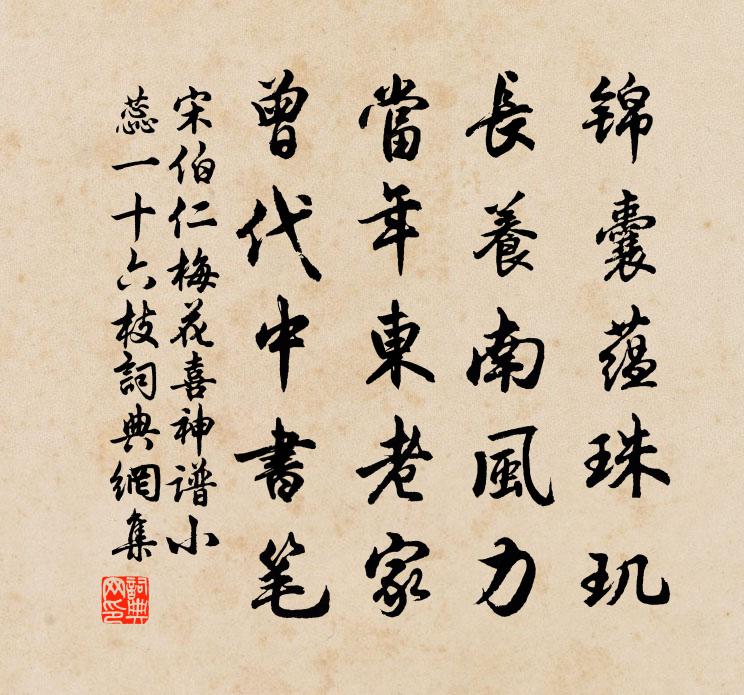 锦囊蕴珠玑
長養南風力
當年東老家
曾代中書笔
宋伯仁梅花喜神谱小
蕊一十六枝詞典網集
詞典网印